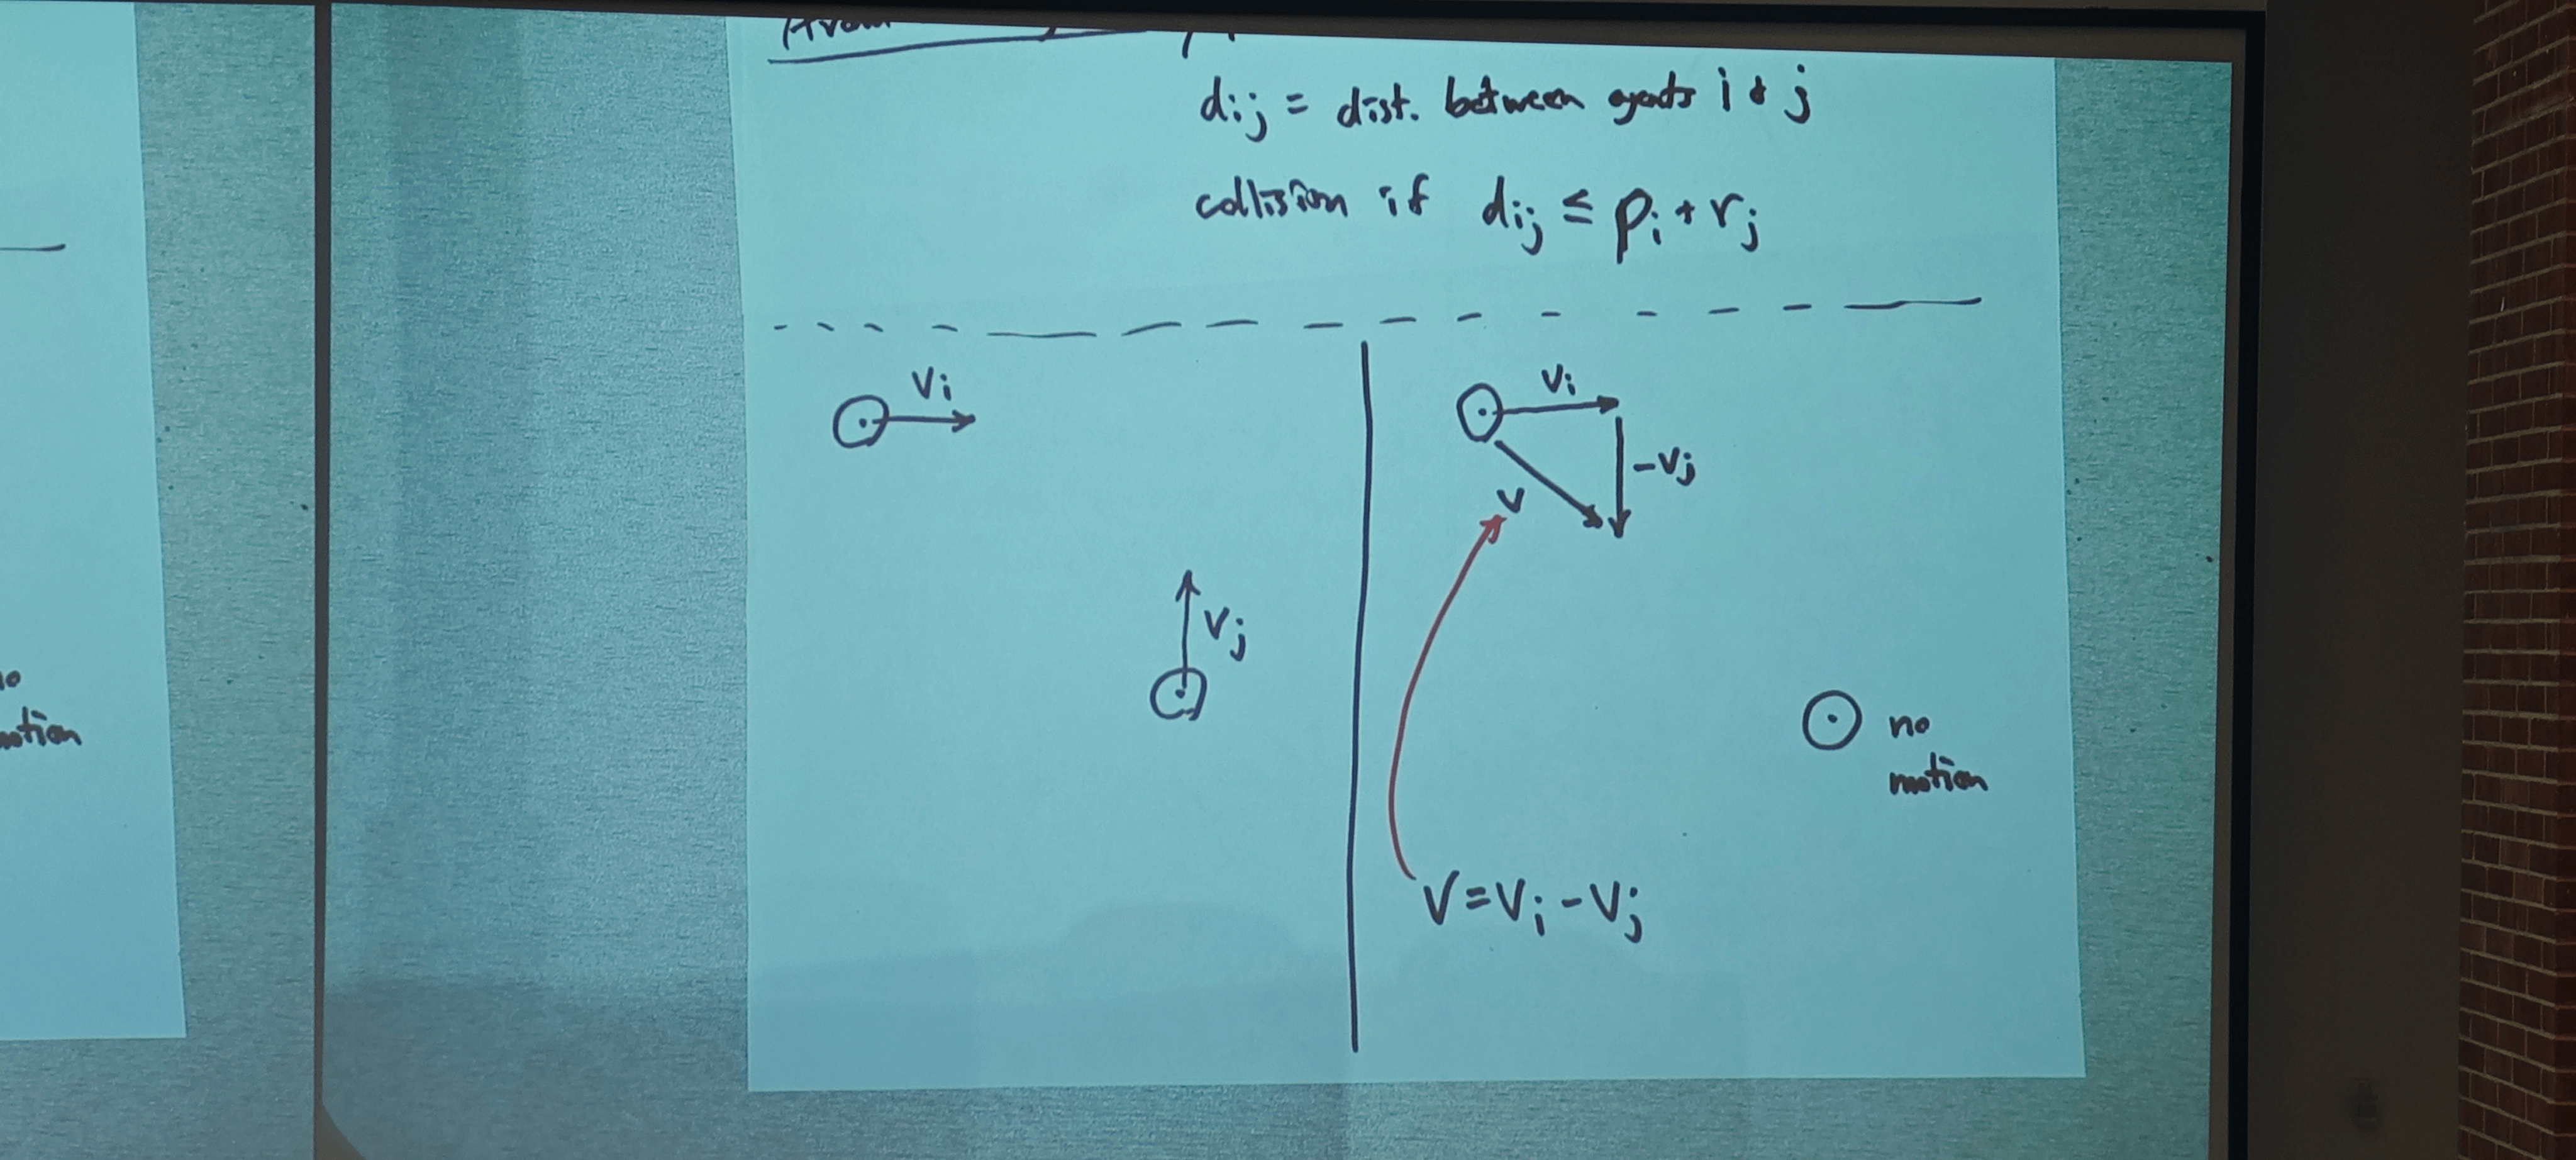 dij = dist. between agents i & j
collision if dij ≤ pi + rj
Vi
Vj
Vi
-Vj
V
no
motion
V = Vi - Vj